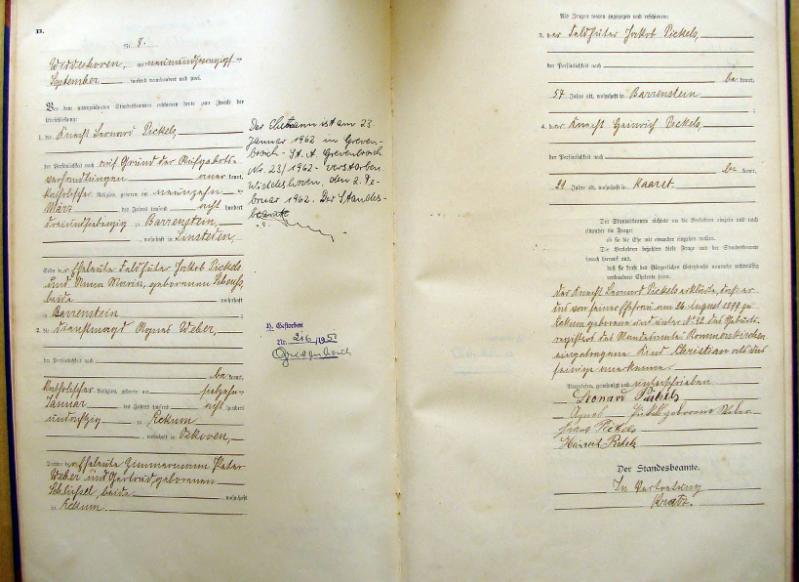 Nr. 8.
Wevelhoven, am neunundzwanzigsten
September tausend neunhundert und zwei.
Vor dem unterzeichneten Standesbeamten erschienen heute zum Zwecke der
Eheschließung:
1. der Knecht Leonard Pickels,
der Persönlichkeit nach auf Grund der Aufgebots-
verhandlungen kannt,
katholischer Religion, geboren am neunzehn-
März des Jahres tausend acht hundert
dreiundsiebenzig zu Barrenstein,
, wohnhaft in Sinsteden,
Sohn der Eheleute Feldhüter Jakob Pickels
und Anna Maria, geborenen
beide wohnhaft
in Barrenstein ;
2. die Dienstmagd Agnes Weber,
der Persönlichkeit nach
be kannt,
katholischer Religion, geboren am
Januar des Jahres tausend acht hundert
undachtzig zu Eckum
, wohnhaft in Oekoven,
Tochter der Eheleute Zimmermann Peter
Weber und Gertrud, geborenen
Schlüssel, beide wohnhaft
in Eckum
Der Ehemann ist am 23.
Januar 1962 in Greven-
broich - St. A. Grevenbroich
Nr. 23/1962 - verstorben
den 2. Fe-
bruar 1962. Der Standes-
beamte
Gestorben
Nr. 206/195
Grevenbroich
Als Zeugen waren zugezogen und erschienen:
3. der Feldhüter Jakob Pickels,
der Persönlichkeit nach
be kannt,
57 Jahre alt, wohnhaft in Barrenstein
4. der Knecht Heinrich Pickels,
der Persönlichkeit nach
be kannt,
21 Jahre alt, wohnhaft in Kaarst.
Der Standesbeamte richtete an die Verlobten einzeln und nach
einander die Frage:
ob sie die Ehe mit einander eingehen wollen.
Die Verlobten bejahten diese Frage und der Standesbeamte
sprach hierauf aus,
daß sie kraft des Bürgerlichen Gesetzbuchs nunmehr rechtmäßig
verbundene Eheleute seien.
Der Knecht Leonard Pickels erklärte, daß er
das von seiner Ehefrau am 26. August 1899 zu
Eckum geborene und unter N. 32 des Geburts-
registers des Standesamtes Rommerskirchen
eingetragene Kind Christian als das
seinige anerkenne.
Vorgelesen, genehmigt und unterschrieben
Leonard Pickels
Agnes Pickels geborene Weber
Pickels
Heinrich Pickels
Der Standesbeamte.
In Vertretung